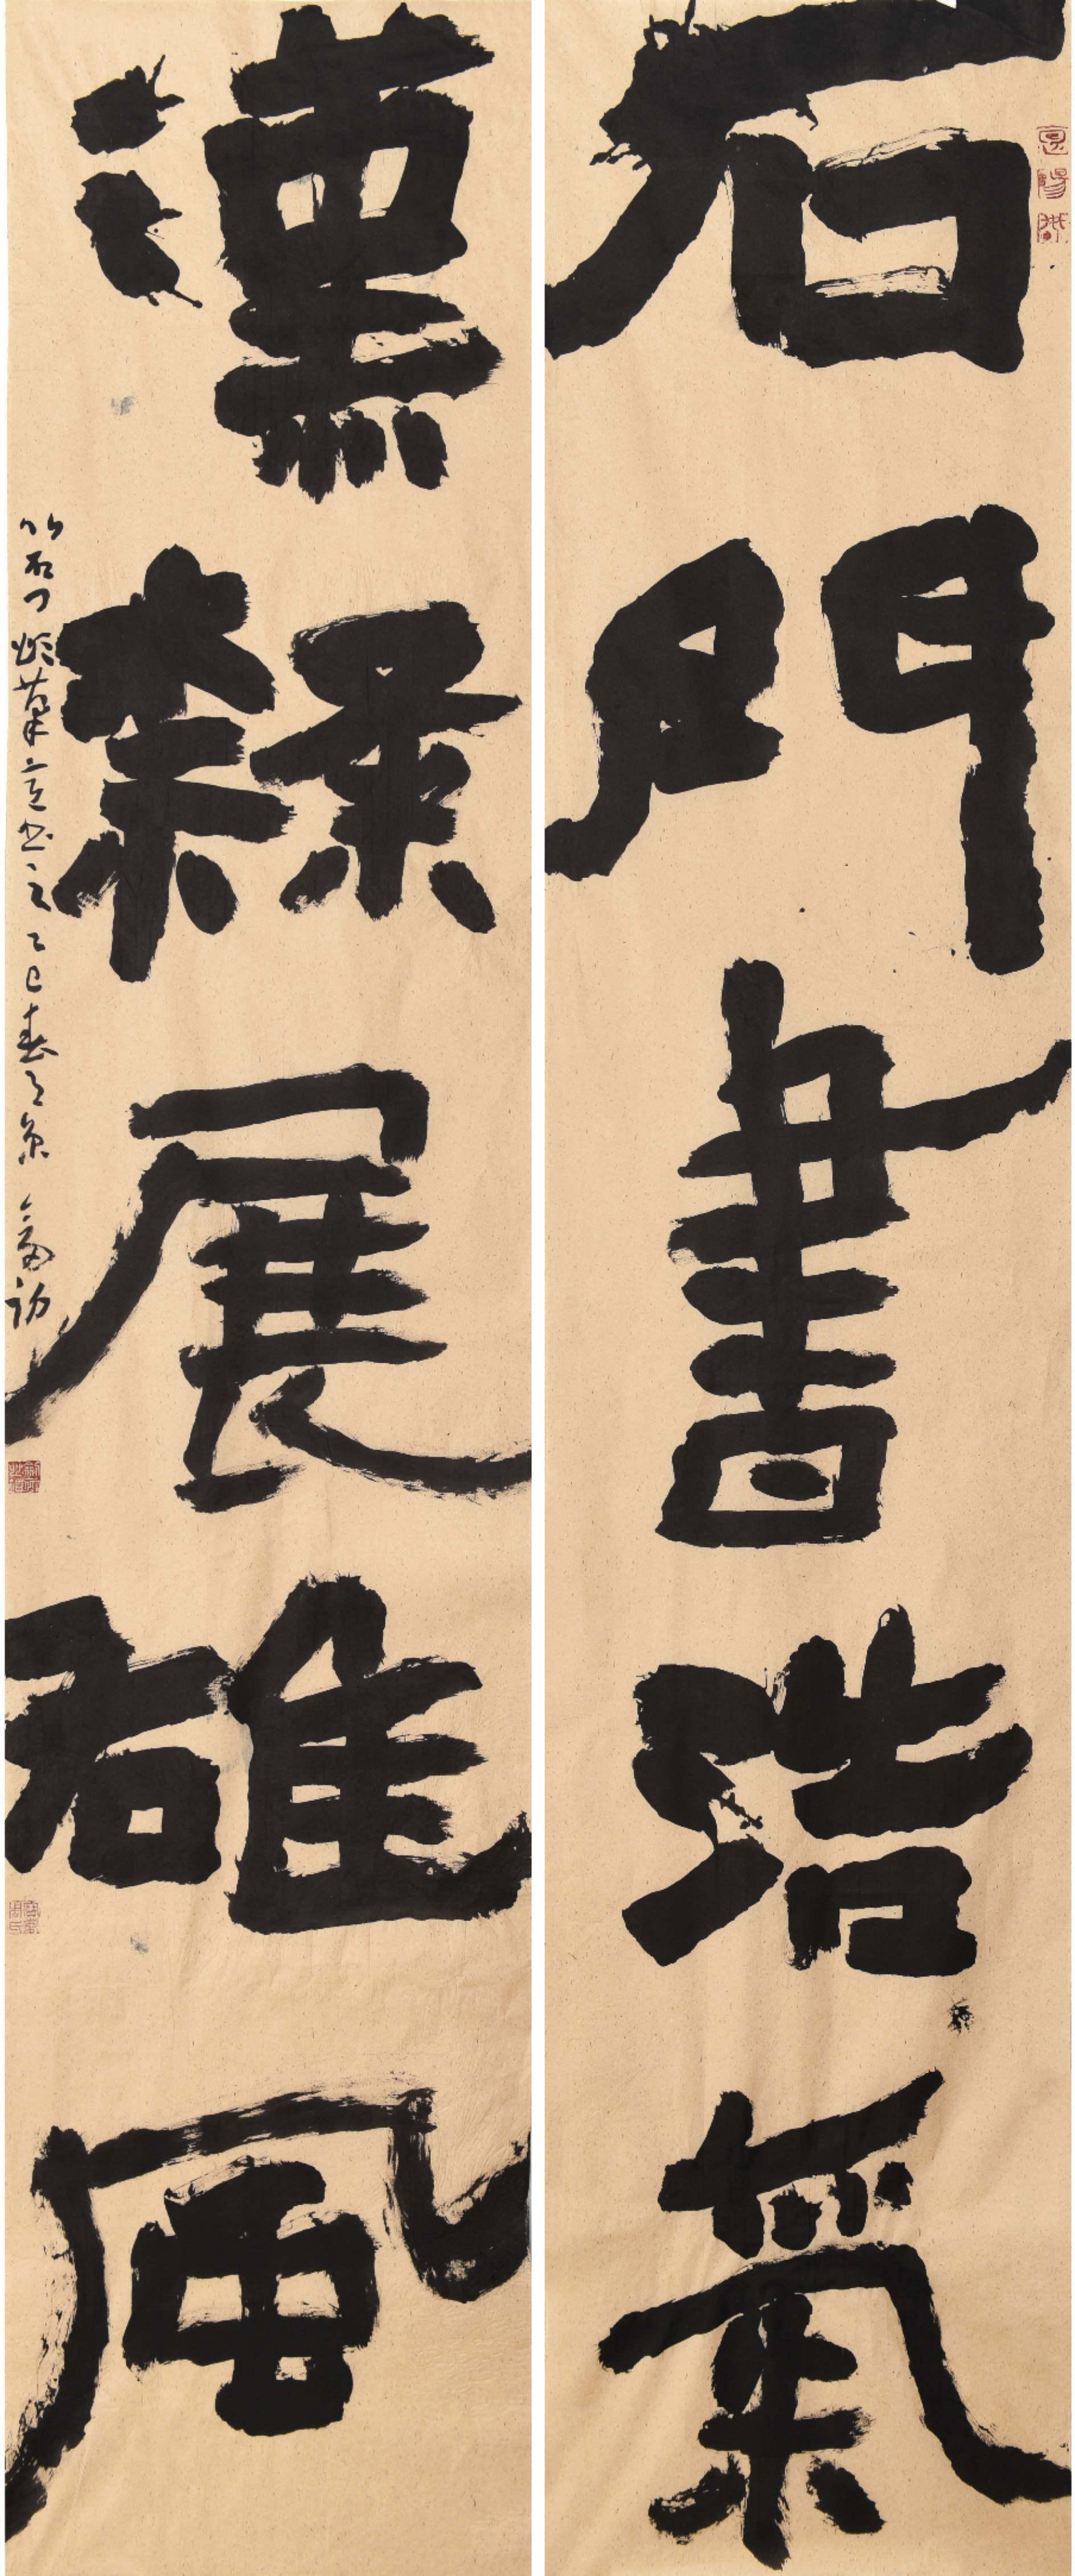 石門書浩氣
漢隸展雄風
以石門頌筆意書之乙巳春之末